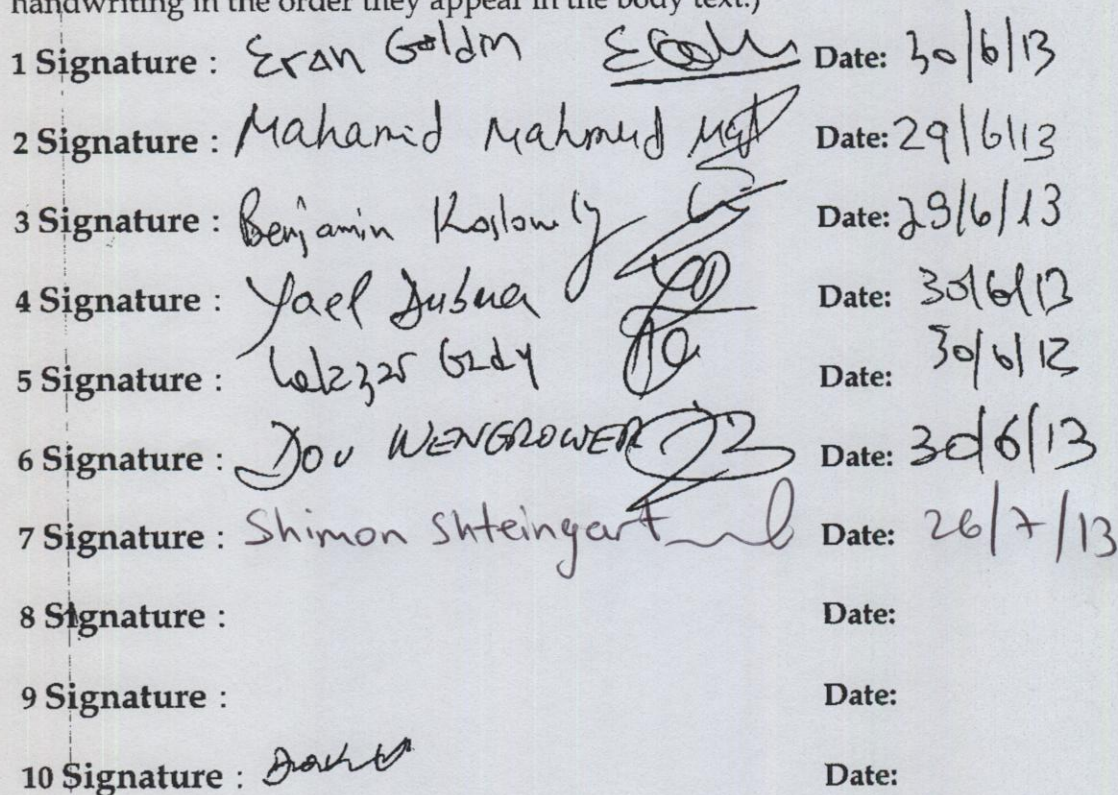 handwriting in the order they appear in the body text.)
1 Signature : Eran Goldin Date: 30/6/13
2 Signature : Mahamid Mahmud Date: 29/6/13
3 Signature : Benjamin Koslowsky Date: 29/6/13
4 Signature : Yael Date: 30/6/13
5 Signature : Date: 30/6/12
6 Signature : Dov WENGROWER Date: 30/6/13
7 Signature : Shimon Shteingart Date: 26/7/13
8 Signature : Date:
9 Signature : Date:
10 Signature : Date: